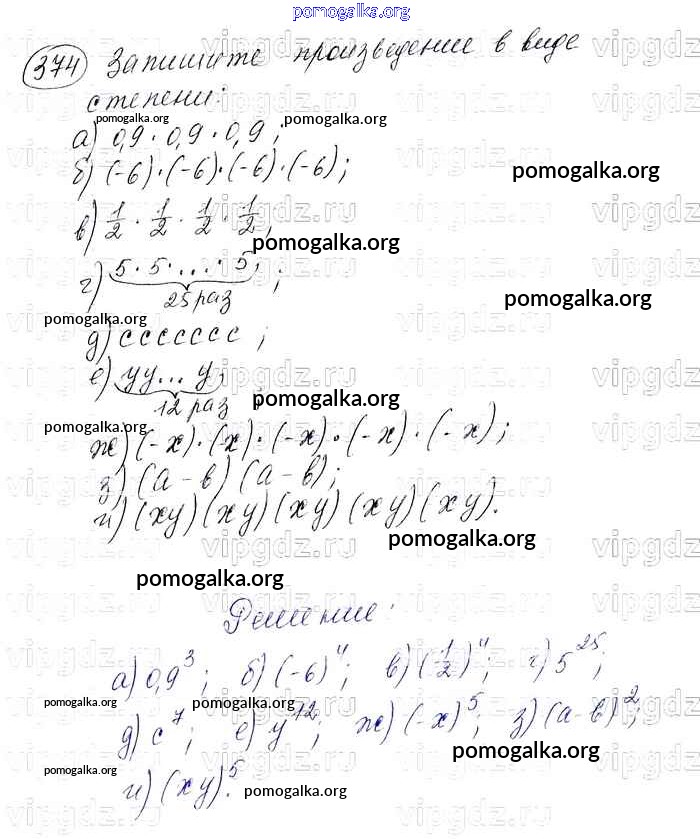 pomogalka.org
374 Запишите произведение в виде
степени:
pomogalka.org pomogalka.org
а) 0,9 · 0,9 · 0,9 ;
б) (-6)·(-6)·(-6)·(-6);
pomogalka.org
в) 1/2 · 1/2 · 1/2 · 1/2 ;
pomogalka.org
г) 5 · 5 · ... · 5 ;
25 раз
pomogalka.org
pomogalka.org
д) ссссссс ;
е) уу... у ;
12 раз
pomogalka.org
pomogalka.org
ж) (-х)·(-х)·(-х)·(-х)·(-х);
з) (а-в)(а-в);
и) (ху)(ху)(ху)(ху)(ху).
pomogalka.org
pomogalka.org
Решение:
а) 0,9³; б) (-6)⁴; в) (1/2)⁴; г) 5²⁵;
pomogalka.org pomogalka.org
д) с⁷; е) у¹²; ж) (-х)⁵; з) (а-в)²;
pomogalka.org
pomogalka.org
и) (ху)⁵.
pomogalka.org
vipgdz.ru